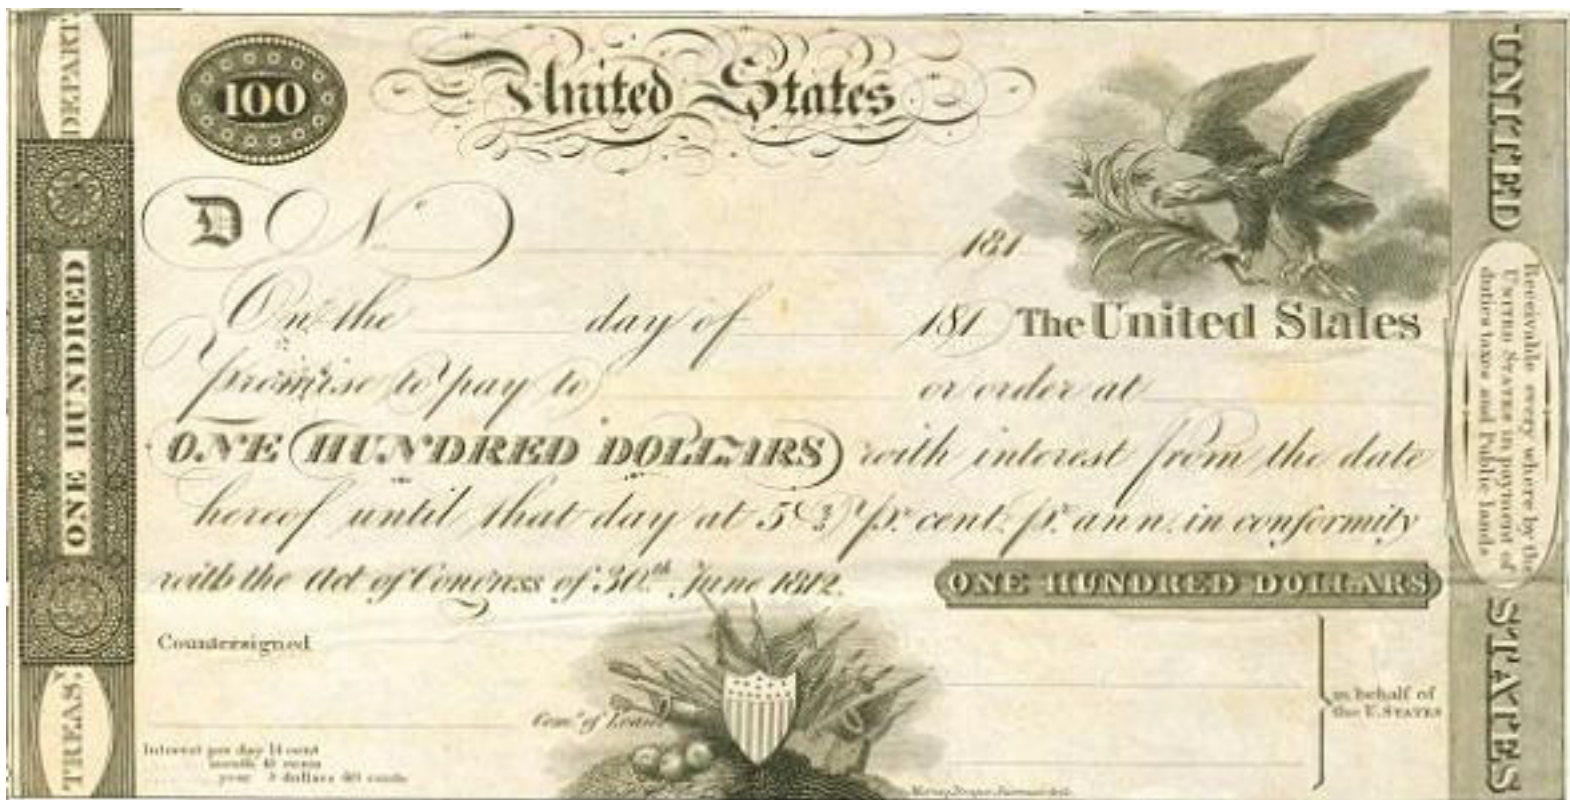 DEPART.
ONE HUNDRED
TREASY
100
United States
D No. 181
On the day of 181 The United States
promise to pay to or order at
ONE HUNDRED DOLLARS with interest from the date
hereof until that day at 5 2/5 pr. cent. pr. ann. in conformity
with the Act of Congress of 30th June 1812.
ONE HUNDRED DOLLARS
Countersigned
Comr. of Loans
in behalf of
the U. STATES
Interest per day 1½ cent
month 45 cents
year 5 dollars 40 cents
Murray Draper Fairman
UNITED
STATES
Receivable every where by the
UNITED STATES in payment of
duties taxes and Public lands